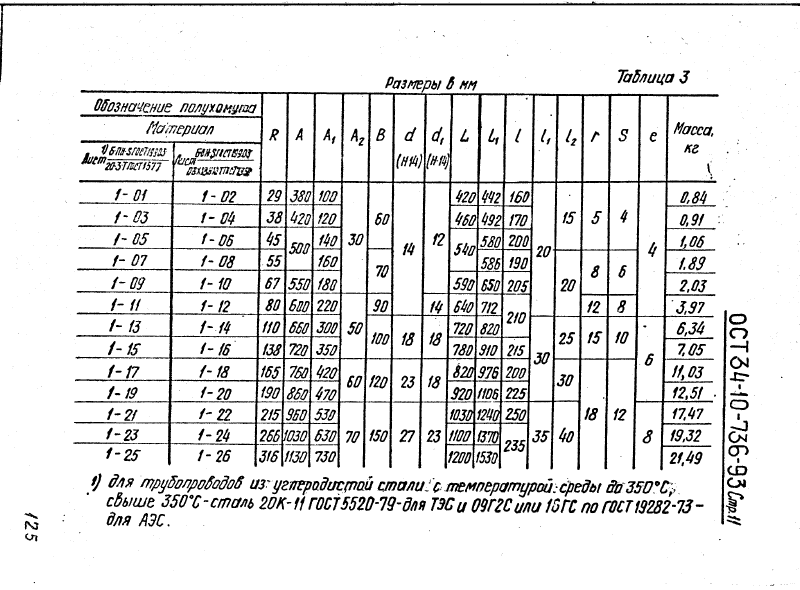 Таблица 3
Размеры в мм
Обозначение полухомута R A A₁ A₂ B d (H14) d₁ (H14) L L₁ l l₁ l₂ r S e Масса, кг
Материал
Лист Лист
1-01 1-02 29 380 100 30 60 14 12 420 442 160 20 15 5 4 4 0,84
1-03 1-04 38 420 120 460 492 170 0,91
1-05 1-06 45 500 140 540 580 200 1,06
1-07 1-08 55 160 70 586 190 20 8 6 1.89
1-09 1-10 67 550 180 590 650 205 2,03
1-11 1-12 80 600 220 50 90 14 640 712 210 12 8 3,97
1-13 1-14 110 660 300 100 18 18 720 820 30 25 15 10 6 6,34
1-15 1-16 138 720 350 780 910 215 7,05
1-17 1-18 165 760 420 60 120 23 18 820 976 200 30 18 12 11,03
1-19 1-20 190 860 470 920 1106 225 12,51
1-21 1-22 215 960 530 70 150 27 23 1030 1240 250 35 40 8 17,47
1-23 1-24 266 1030 630 1100 1370 235 19,32
1-25 1-26 316 1130 730 1200 1530 21,49
1) для трубопроводов из углеродистой стали с температурой среды до 350°С,
свыше 350°С - сталь 20К-11 ГОСТ 5520-79 - для ТЭС и 09Г2С или 16ГС по ГОСТ 19282-73 -
для АЭС.
ОСТ 34-10-736-93 Стр.11
125